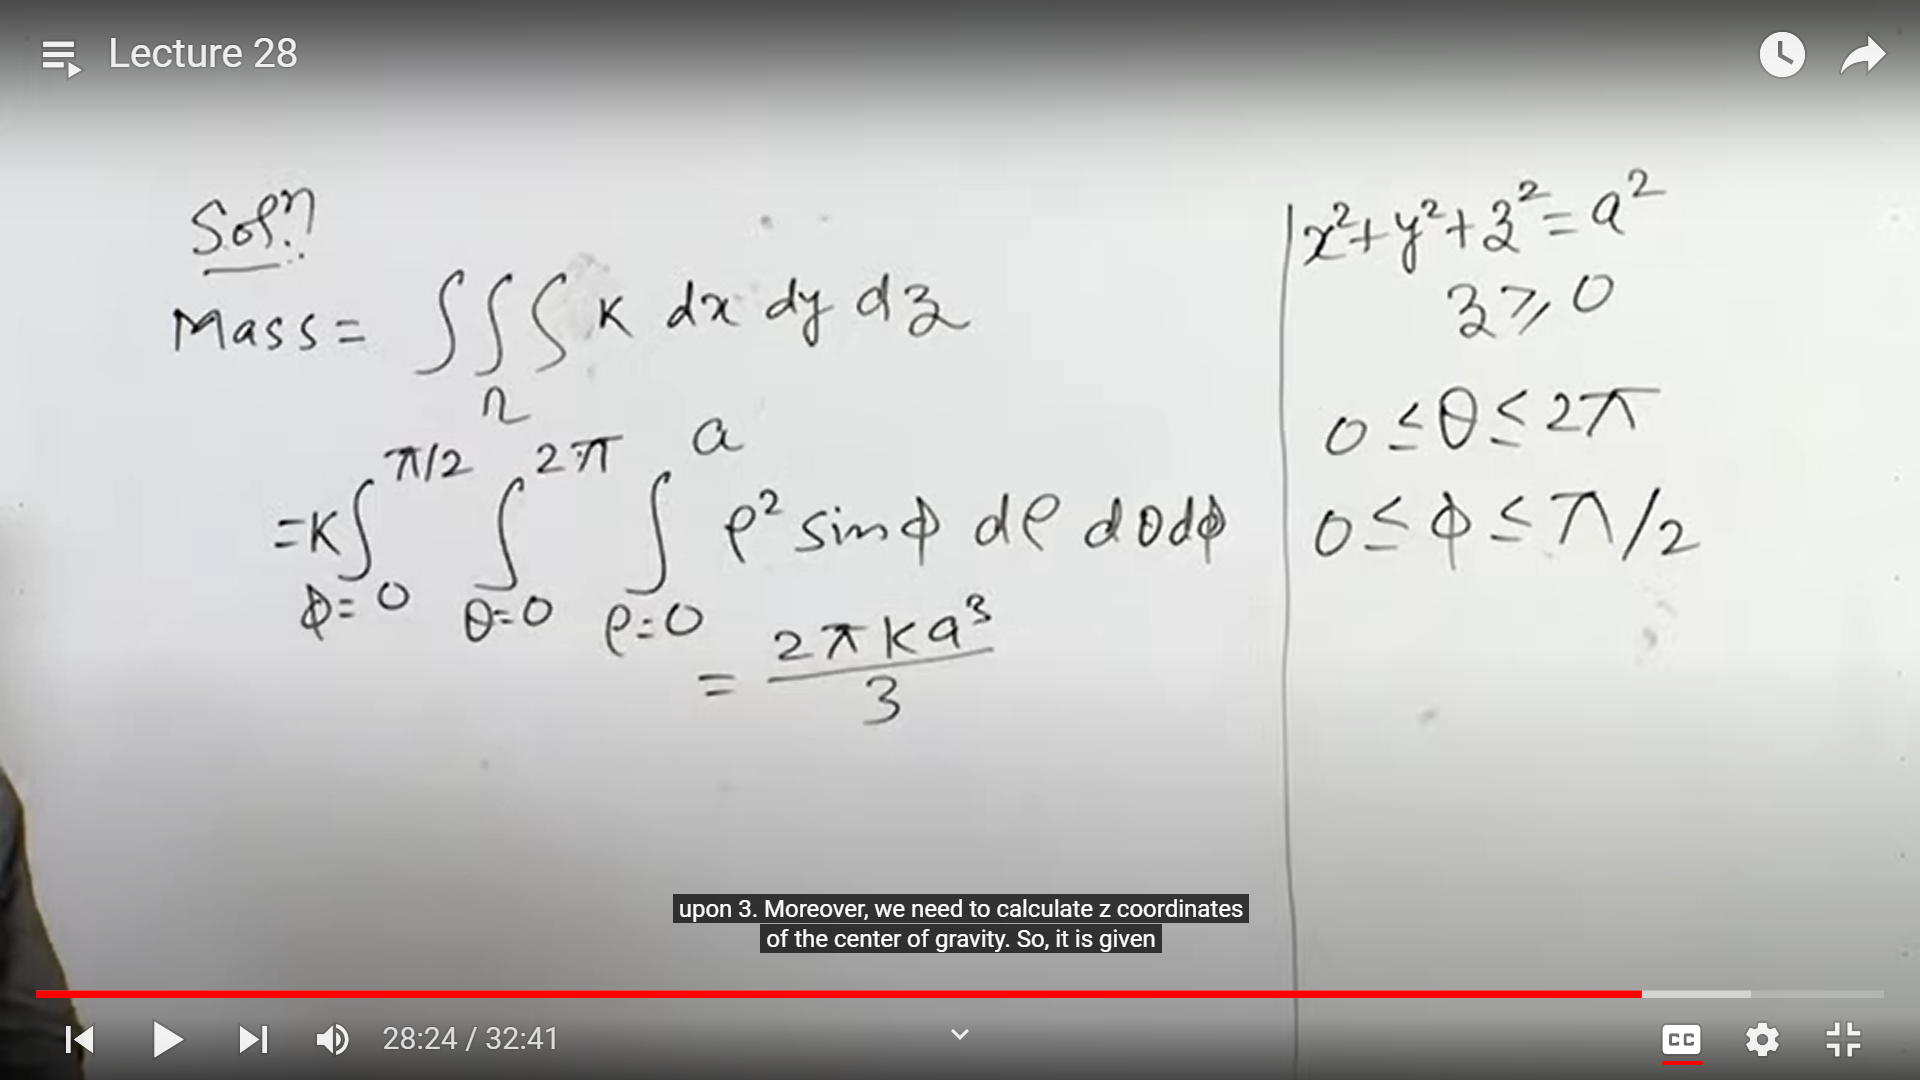 Lecture 28
Solⁿ.
Mass = ∫∫∫ K dx dy dz
Ω
= K ∫_{ϕ=0}^{π/2} ∫_{θ=0}^{2π} ∫_{ρ=0}^{a} ρ² sinϕ dρ dθ dϕ
= 2πKa³/3
x² + y² + z² = a²
z ≥ 0
0 ≤ θ ≤ 2π
0 ≤ ϕ ≤ π/2
upon 3. Moreover, we need to calculate z coordinates
of the center of gravity. So, it is given
28:24 / 32:41
CC